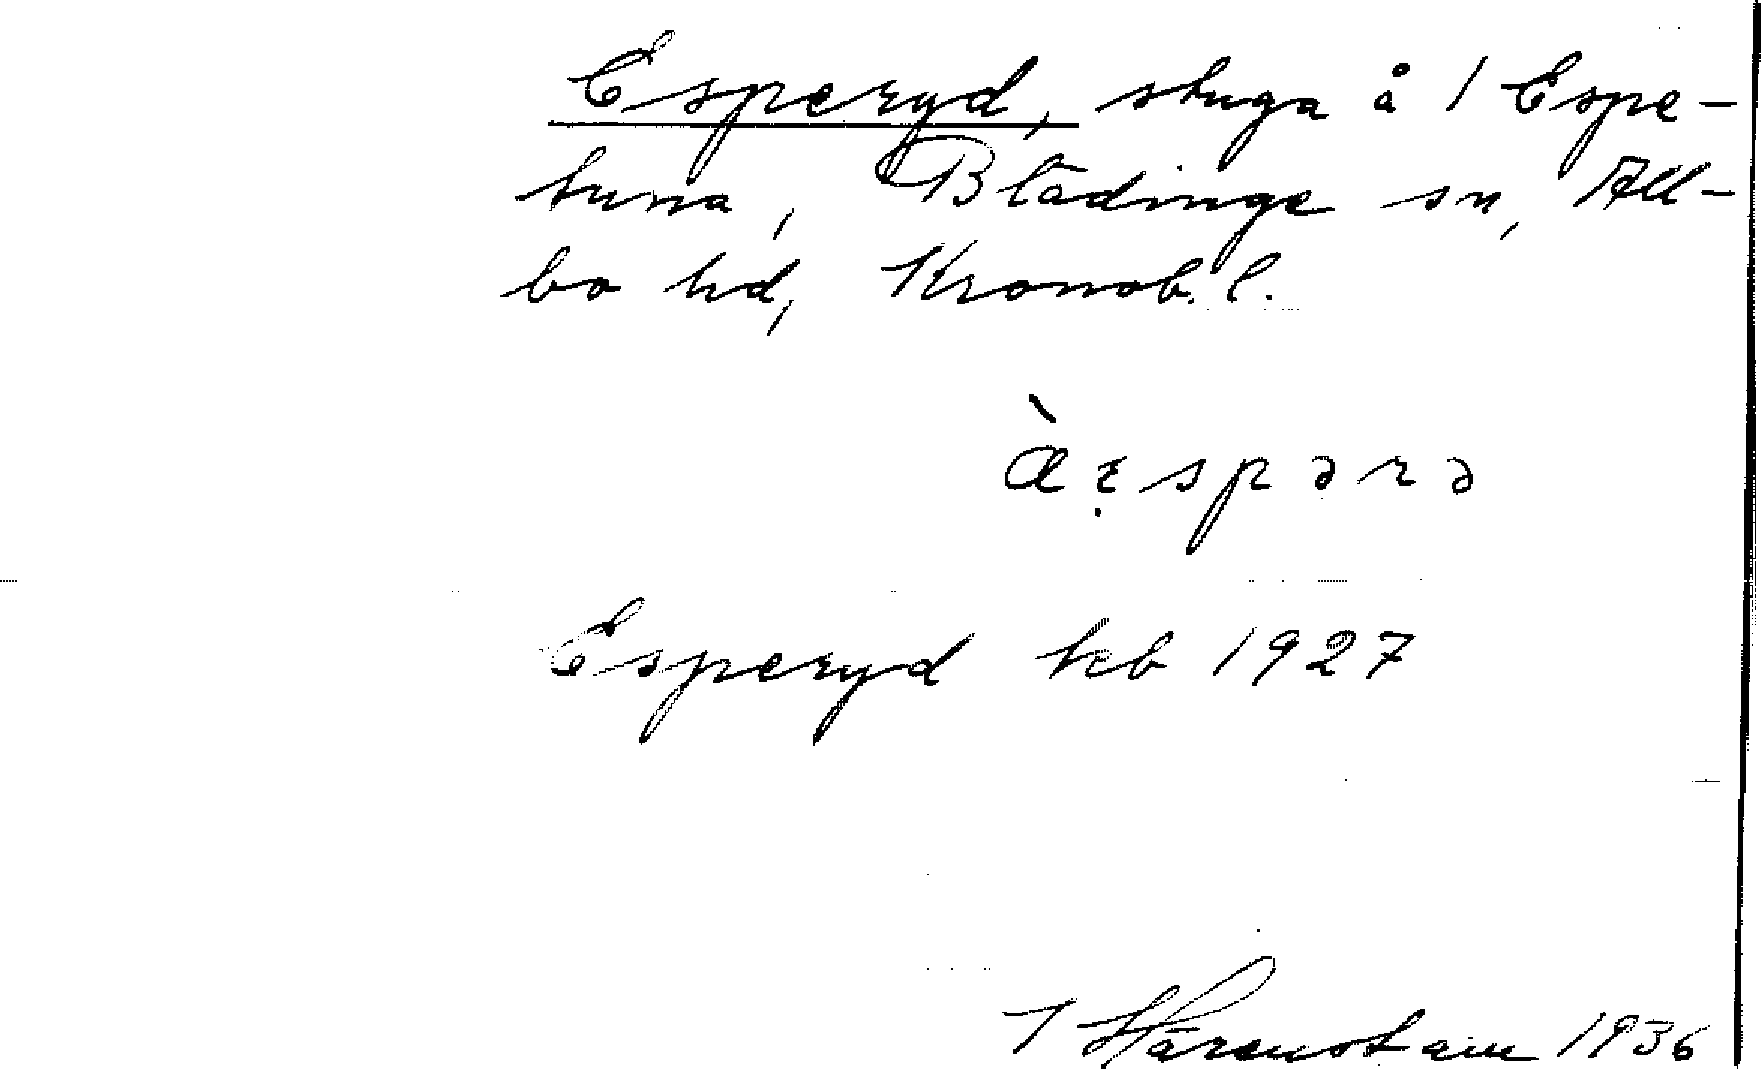 Esperyd, stuga å 1 Espe-
tuna, Blädinge sn, All-
bo hd, Kronob. l.
æ̀ɛ̣spərə
Esperyd kb 1927
J Härenstam 1936